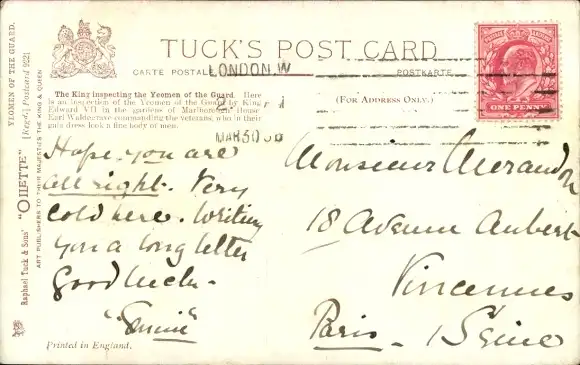 TUCK'S POST CARD
CARTE POSTALE
POSTKARTE
LONDON. W
MAR 30 06
ONE PENNY
YEOMEN OF THE GUARD.
[Regd.] Postcard 9221
Raphael Tuck & Sons' "OILETTE"
ART PUBLISHERS TO THEIR MAJESTIES THE KING & QUEEN
The King inspecting the Yeomen of the Guard. Here
is an inspection of the Yeomen of the Guard by King
Edward VII in the gardens of Marlborough House
Earl Waldegrave commanding the veterans, who in their
gala dress look a fine body of men.
(FOR ADDRESS ONLY.)
Hope you are
all right. Very
cold here. Writing
you a long letter
Good luck -
Monsieur Merandon
18 Avenue Aubert
Vincennes
Paris - Seine
Printed in England.